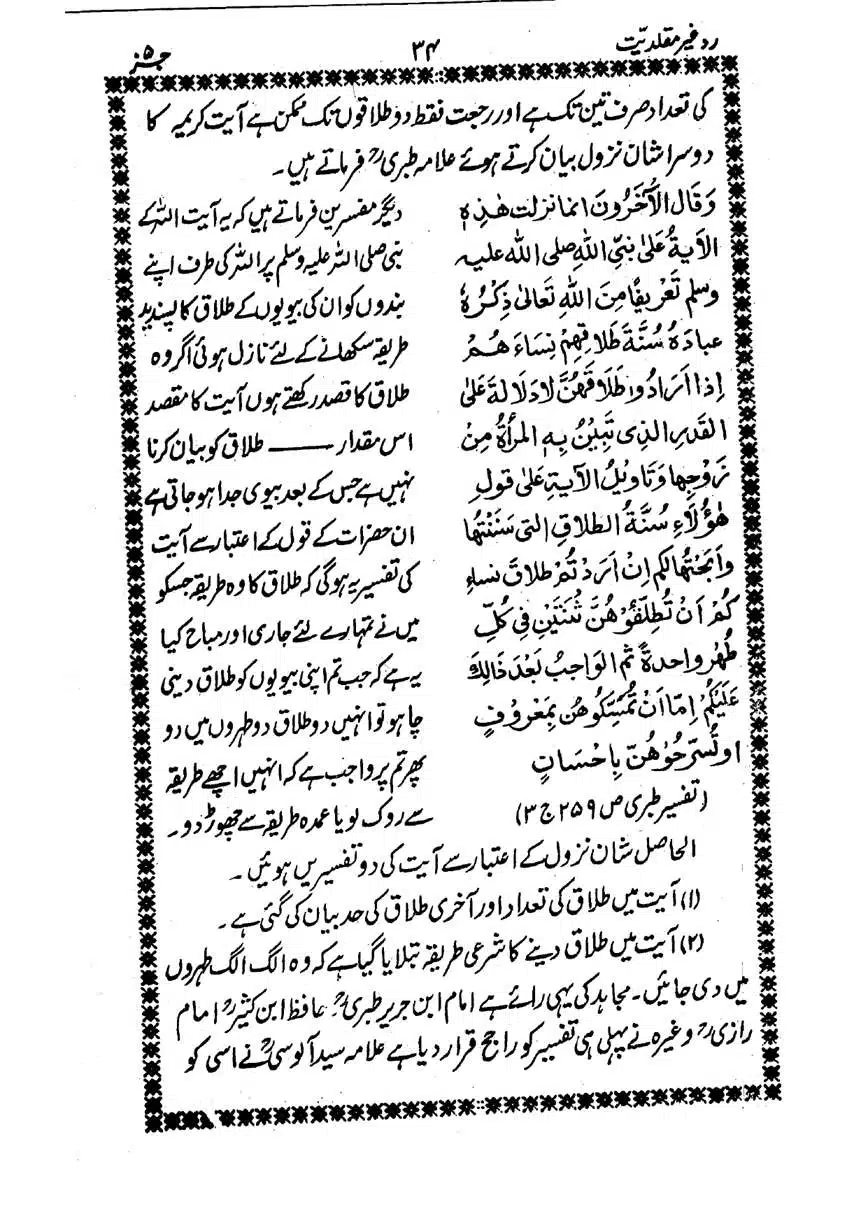 رد غیر مقلدیت
۳۴
جز ۵
کی تعداد صرف تین تک ہے اور رجعت فقط دو طلاقوں تک ممکن ہے آیت کریمہ کا
دوسرا شان نزول بیان کرتے ہوئے علامہ طبریؒ فرماتے ہیں۔
وَقَال الْآخَرُونَ انما نزلت هٰذِهِ
الاٰيةُ عَلىٰ نَبِيِّ اللهِ صلى الله عليه
وسلم تَعْرِيفًا مِنَ اللهِ تَعَالىٰ ذِكْرُهٗ
عبادَهُ سُنَّةَ طَلَاقِهِمْ نِسَاءَ هُمْ
اِذا اَرَادُوا طَلَاقَهُنَّ لا دَلَالَةَ عَلىٰ
القَدرِ الذِى تَبِيْنُ بِهِ المرأةُ مِنْ
زَوْجِها وَتَاوِيلُ الاٰيةِ عَلىٰ قولِ
هٰؤُلَاءِ سُنَّةُ الطلاقِ التى سَنَنْتُها
وَاَبَحْتُها لكم اِنْ اَرَدْتُمْ طلاقَ نساءِ
كُمْ اَنْ تُطَلِّقُوْهُنَّ ثِنْتَيْنِ فِي كُلِّ
طُهْرٍ واحدةً ثم الوَاجبُ بَعْدَ ذَالِكَ
عَلَيْكُمْ اِمّا اَنْ تُمْسِكُوهُنَّ بِمَعْرُوفٍ
او تُسَرِّحُوْهُنَّ بِاِحْسَانٍ
(تفسیر طبری ص ۲۵۹ ج ۳)
دیگر مفسرین فرماتے ہیں کہ یہ آیت اللہ کے
نبی صلی اللہ علیہ وسلم پر اللہ کی طرف اپنے
بندوں کو ان کی بیویوں کے طلاق کا پسندید
طریقہ سکھلانے کے لئے نازل ہوئی اگر وہ
طلاق کا قصد رکھتے ہوں آیت کا مقصد
اس مقدار ـــــ طلاق کو بیان کرنا
نہیں ہے جس کے بعد بیوی جدا ہو جاتی ہے
ان حضرات کے قول کے اعتبار سے آیت
کی تفسیر یہ ہوگی کہ طلاق کا وہ طریقہ جسکو
میں نے تمہارے لئے جاری اور مباح کیا
یہ ہے کہ جب تم اپنی بیویوں کو طلاق دینی
چاہو تو انہیں دو طلاق دو طہروں میں دو
پھر تم پر واجب ہے کہ انہیں اچھے طریقہ
سے روک لو یا عمدہ طریقہ سے چھوڑ دو۔
الحاصل شان نزول کے اعتبار سے آیت کی دو تفسیریں ہوئیں۔
(۱) آیت میں طلاق کی تعداد اور آخری طلاق کی حد بیان کی گئی ہے۔
(۲) آیت میں طلاق دینے کا شرعی طریقہ بتلایا گیا ہے کہ وہ الگ الگ طہروں
میں دی جائیں۔ مجاہد کی یہی رائے ہے امام ابن جریر طبریؒ حافظ ابن کثیرؒ امام
رازیؒ وغیرہ نے پہلی ہی تفسیر کو راجح قرار دیا ہے علامہ سید آلوسیؒ نے اسی کو